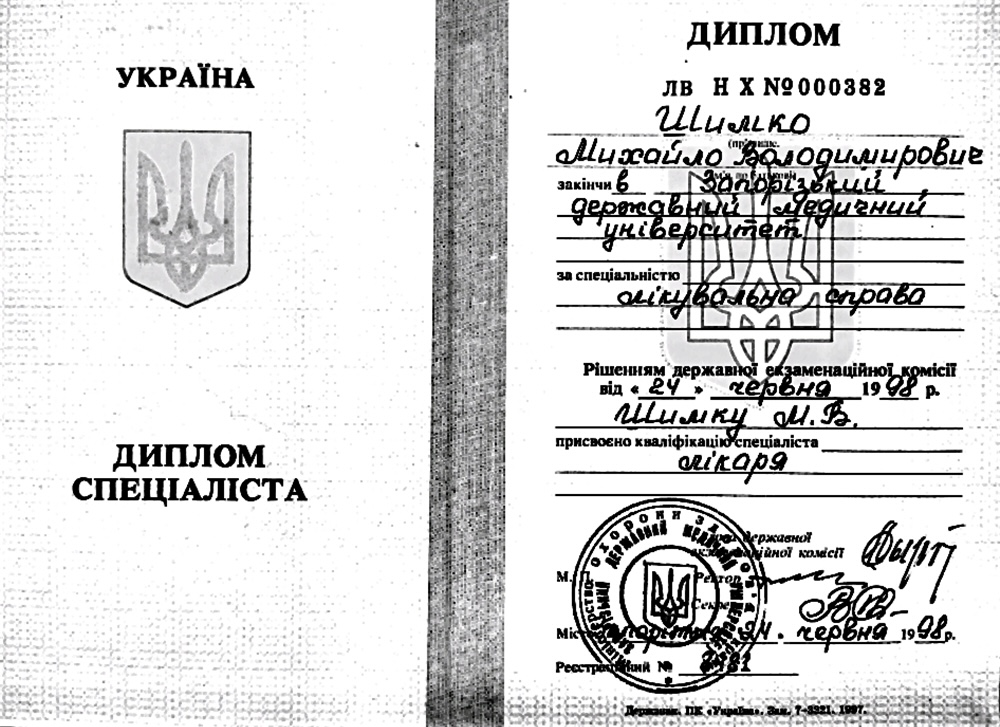 УКРАЇНА
ДИПЛОМ
СПЕЦІАЛІСТА
ДИПЛОМ
ЛВ Н Х №000382
Шимко
Михайло Володимирович
закінчив Запорізький
державний медичний
університет
за спеціальністю
лікувальна справа
Рішенням державної екзаменаційної комісії
від « 24 » червня 1998 р.
Шимку М.В.
присвоєно кваліфікацію спеціаліста
лікаря
державної
екзаменаційної комісії
М. П.
Ректор
24. червня 1998р.
Реєстраційний №
Держзнак. ПК «Україна». Зам. 7-3321. 1997.